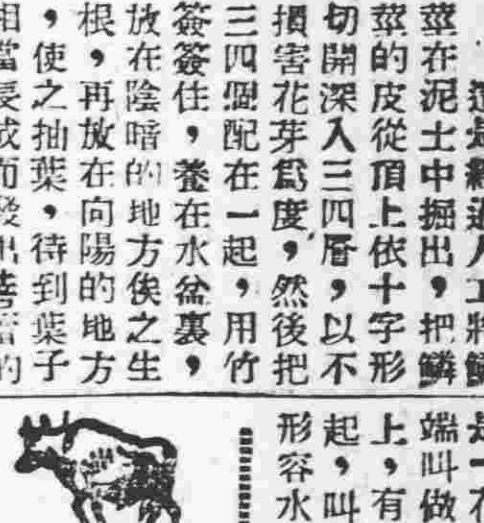 這是經過人工將鱗
莖在泥土中掘出，把鱗
莖的皮從頂上依十字形
切開深入三四層，以不
損害花芽爲度，然後把
三四個配在一起，用竹
簽簽住，養在水盆裏，
放在陰暗的地方俟之生
根，再放在向陽的地方
，使之抽葉，待到葉子
相當長成而發出蓓蕾的
是一
端叫做
上，有
起，叫
形容水